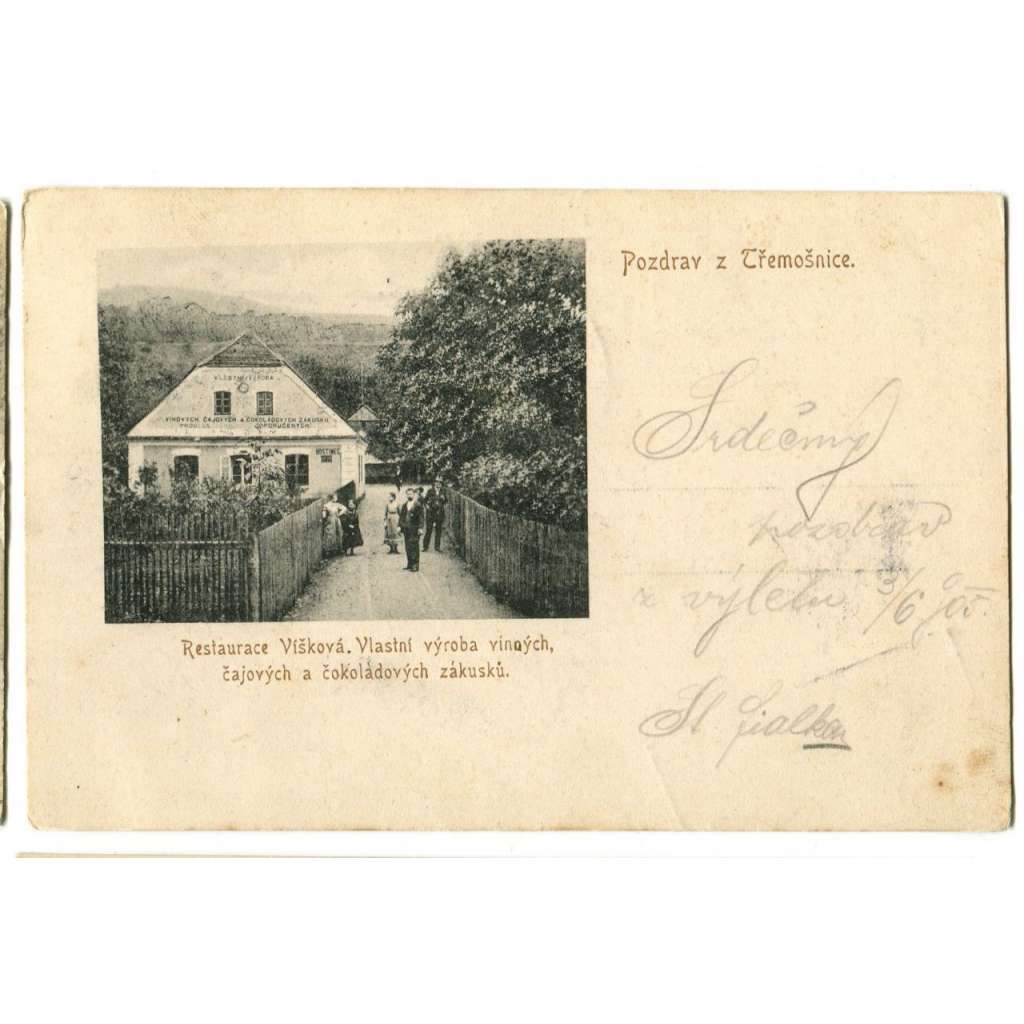 Pozdrav z Třemošnice.
VLASTNÍ VÝROBA
VINOVÝCH, ČAJOVÝCH A ČOKOLÁDOVÝCH ZÁKUSKŮ
DOPORUČENÝCH
HOSTINEC
Restaurace Víšková. Vlastní výroba vinných,
čajových a čokoládových zákusků.
Srdečný
pozdrav
z výletu 3/6
St. Fialka